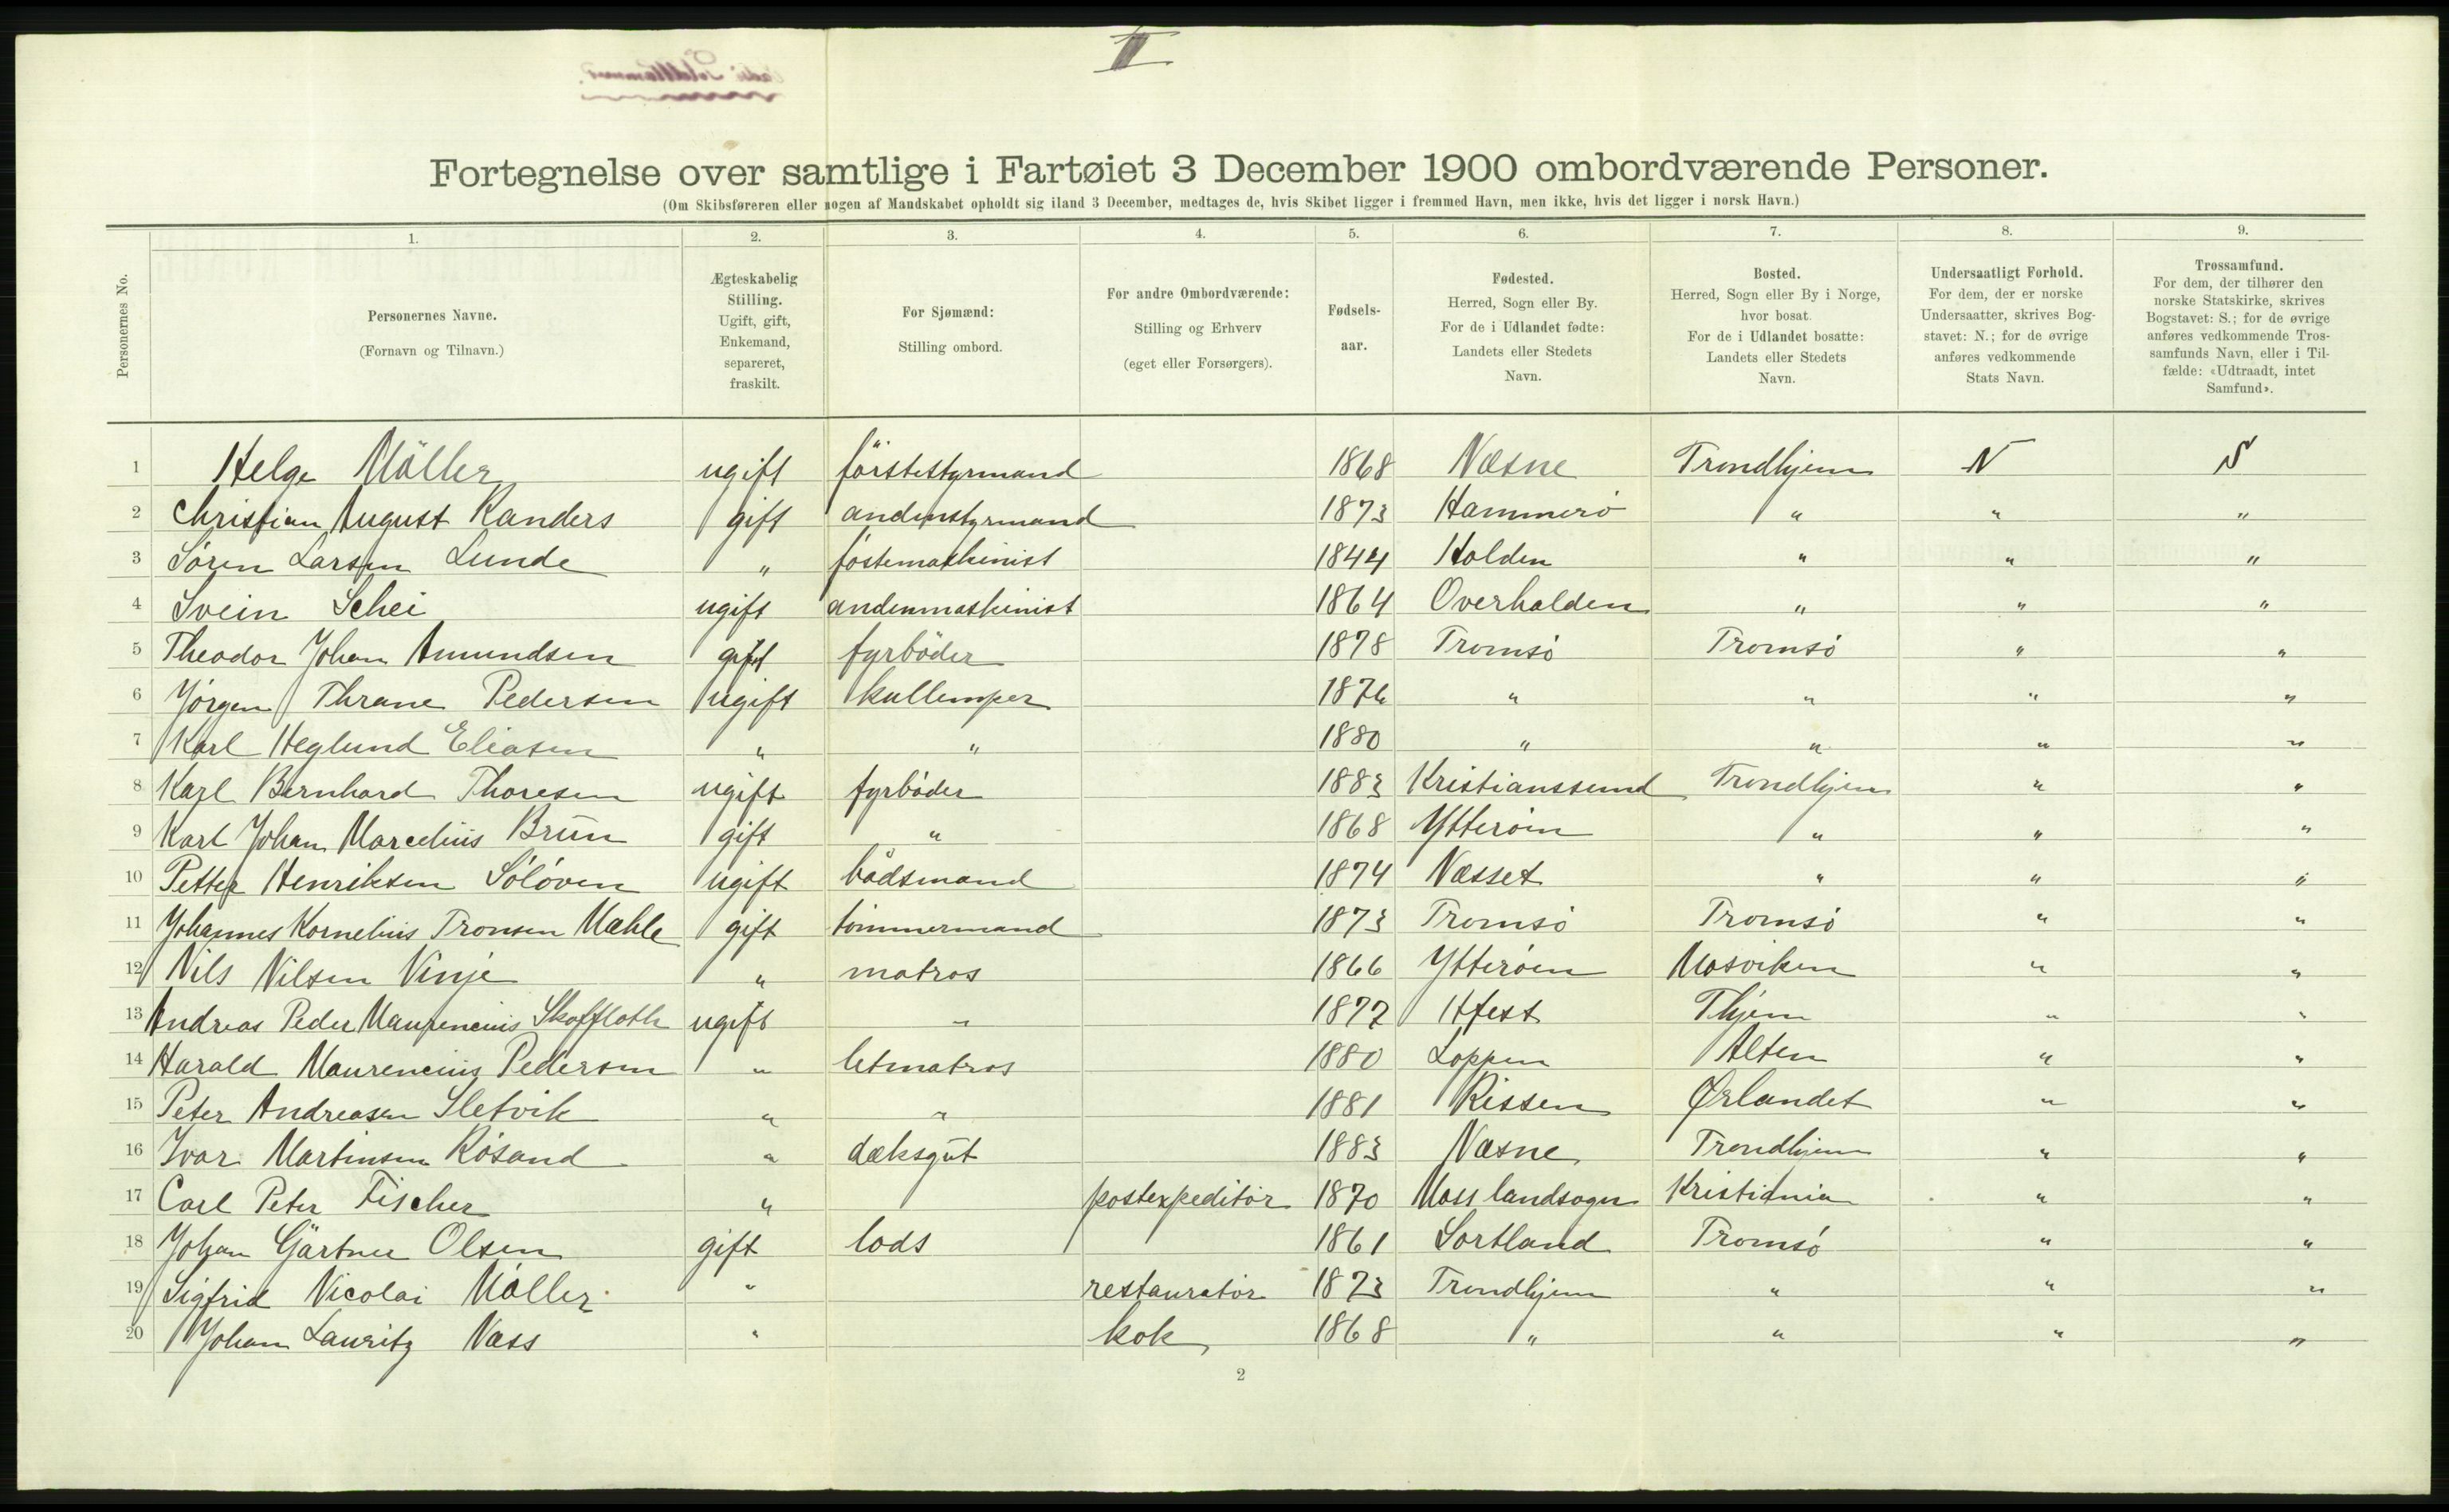 II
Fortegnelse over samtlige i Fartøiet 3 December 1900 ombordværende Personer.
(Om Skibsføreren eller nogen af Mandskabet opholdt sig iland 3 December, medtages de, hvis Skibet ligger i fremmed Havn, men ikke, hvis det ligger i norsk Havn.)
Personernes No.
1. 2. 3. 4. 5. 6. 7. 8. 9.
Personernes Navne.
(Fornavn og Tilnavn.)
Ægteskabelig
Stilling.
Ugift, gift,
Enkemand,
separeret,
fraskilt.
For Sjømænd:
Stilling ombord.
For andre Ombordværende:
Stilling og Erhverv
(eget eller Forsørgers).
Fødsels-
aar.
Fødested.
Herred, Sogn eller By.
For de i Udlandet fødte:
Landets eller Stedets
Navn.
Bosted.
Herred, Sogn eller By i Norge,
hvor bosat.
For de i Udlandet bosatte:
Landets eller Stedets
Navn.
Undersaatligt Forhold.
For dem, der er norske
Undersaatter, skrives Bog-
stavet: N.; for de øvrige
anføres vedkommende
Stats Navn.
Trossamfund.
For dem, der tilhører den
norske Statskirke, skrives
Bogstavet: S.; for de øvrige
anføres vedkommende Tros-
samfunds Navn, eller i Til-
fælde: «Udtraadt, intet
Samfund».
1 Helge Möller ugift förstestyrmand 1868 Næsne Trondhjem N S
2 Christian August Randers gift andenstyrmand 1873 Hammerö " " "
3 Sören Larsen Lunde " föstemaskinist 1844 Holden " " "
4 Svein Schei ugift andenmaskinist 1864 Overhalden " " "
5 Theodor Johan Amundsen gift fyrböder 1878 Tromsö Tromsö " "
6 Jörgen Thrane Pedersen ugift kullemper 1876 " " " "
7 Karl Heglund Eliasen " " 1880 " " " "
8 Karl Bernhard Thoresen ugift fyrböder 1883 Kristianssund Trondhjem " "
9 Karl Johan Marcelius Brun gift " 1868 Ytteröen " " "
10 Petter Henriksen Sölöven ugift bådsmand 1874 Næsset " " "
11 Johannes Kornelius Tronsen Mæhle gift tömmermand 1873 Tromsö Tromsö " "
12 Nils Nilsen Vinje " matros 1866 Ytteröen Mosviken " "
13 Andreas Peder Maurencius Skoffloth ugift " 1877 Hfest Thjem " "
14 Harald Maurencius Pedersen " letmatros 1880 Loppen Alten " "
15 Peter Andreasen Sletvik " " 1881 Rissen Ørlandet " "
16 Ivar Martinsen Rösand " dæksgut 1883 Næsne Trondhjem " "
17 Carl Peter Fischer " postexpeditör 1870 Moss landsogn Kristiania " "
18 Johan Gärtner Olsen gift lods 1861 Sortland Tromsö " "
19 Sigfrid Nicolai Möller " restauratör 1873 Trondhjem " " "
20 Johan Lauritz Næss " kok 1868 " " " "
2